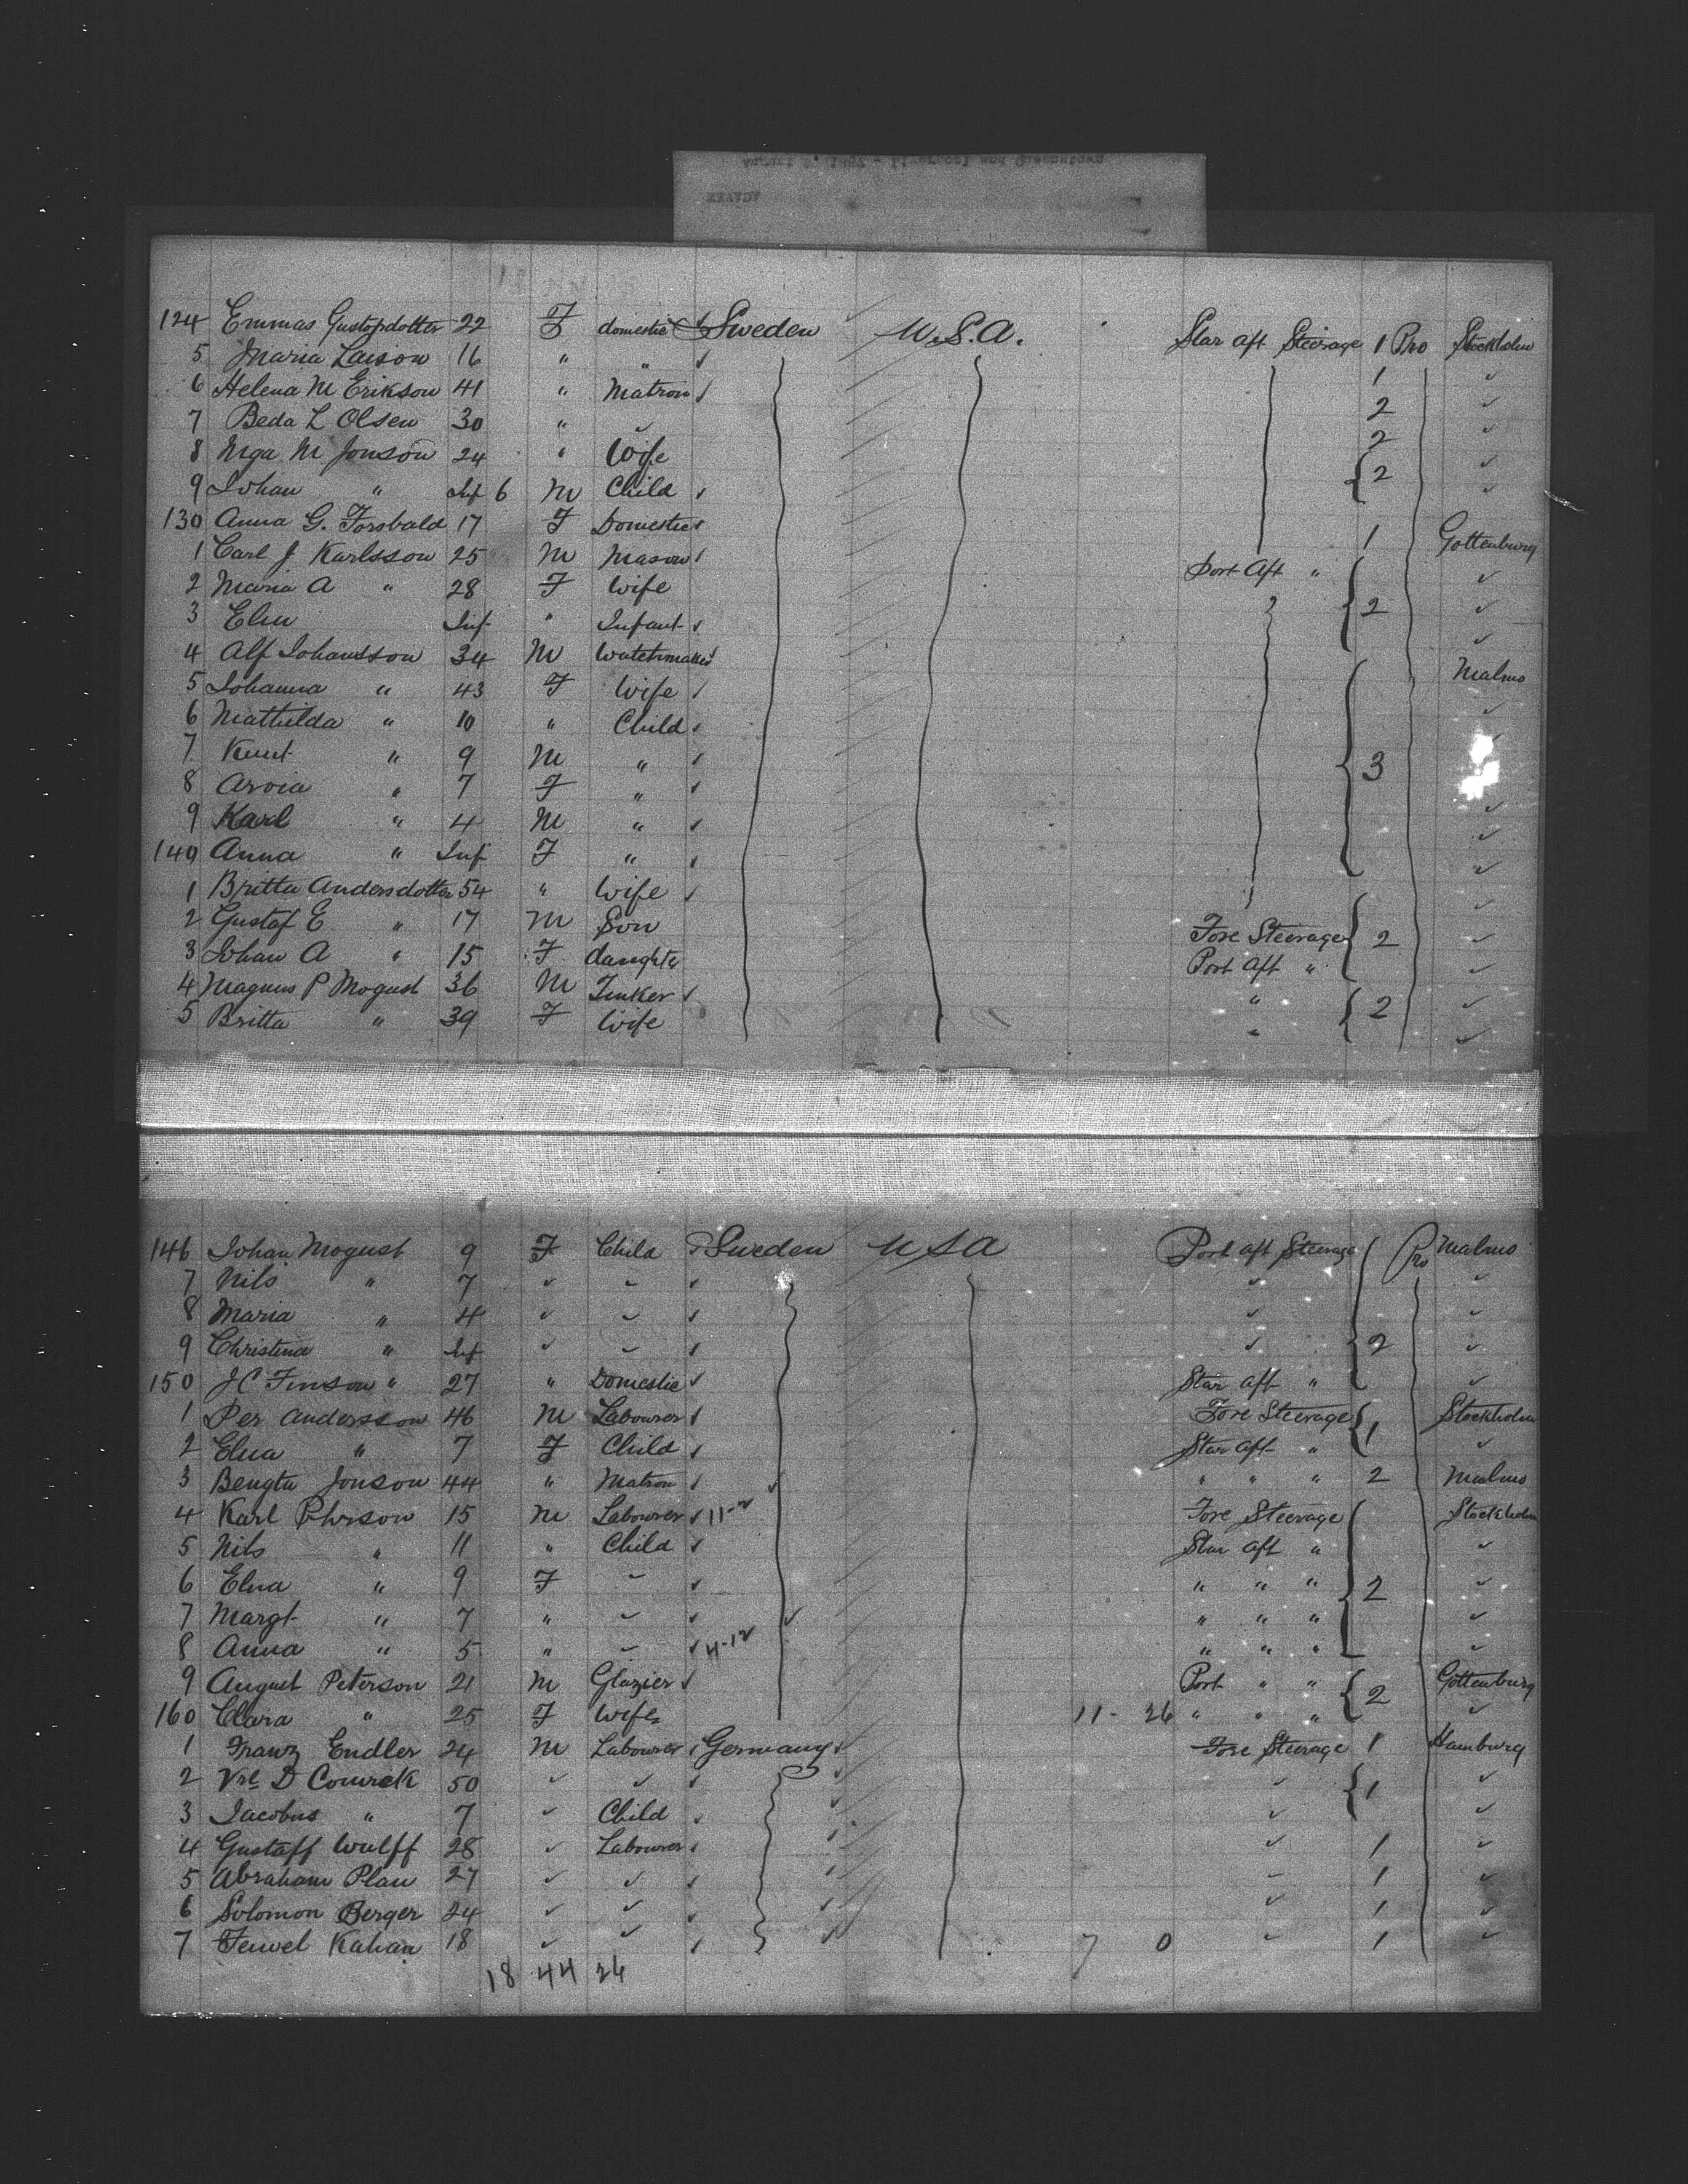 124 Emmas Gustafsdotter 22 F domestic Sweden U.S.A. Star aft Steerage 1 Pro Stockholm
5 Maria Larson 16 " " 1 ✓
6 Helena M Erikson 41 " Matron 2 ✓
7 Beda L Olsen 30 " ✓ 2 ✓
8 Inga M Jonson 24 " Wife 2 ✓
9 Johan " Inf 6 M Child ✓
130 Anna G. Forsbald 17 F Domestic 1 Gottenburg
1 Carl J Karlsson 25 M Mason Port Aft " ✓
2 Maria A " 28 F Wife 2 ✓
3 Elin Inf " Infant ✓
4 Alf Johansson 34 M Watchmaker Malmo
5 Johanna " 43 F Wife ✓
6 Mathilda " 10 " Child
7 Knut " 9 M " 3
8 Arvia " 7 F "
9 Karl " 4 M " ✓
140 Anna " Inf F " ✓
1 Britta Andersdotter 54 " Wife ✓
2 Gustaf E " 17 M Son Fore Steerage 2 ✓
3 Johan A " 15 F daughter Port Aft " ✓
4 Magnus P Mogust 36 M Tinker " 2 ✓
5 Britta " 39 F Wife " ✓
146 Johan Mogust 9 F Child Sweden U S A Port aft Steerage Pro Malmo
7 Nils " 7 ✓ ✓ ✓ ✓
8 Maria " 4 ✓ ✓ ✓ ✓
9 Christina " Inf ✓ ✓ ✓ 2 ✓
150 J C Finson " 27 " Domestic Star aft " ✓
1 Per Andersson 46 M Labourer Fore Steerage 1 Stockholm
2 Elna " 7 F Child Star aft " ✓
3 Bengta Jonson 44 " Matron " " " 2 Malmo
4 Karl Phrson 15 M Labourer Fore Steerage Stockholm
5 Nils " 11 " Child Star aft " ✓
6 Elna " 9 F ✓ " " " 2 ✓
7 Margt " 7 " ✓ " " " ✓
8 Anna " 5 " ✓ " " " ✓
9 August Peterson 21 M Glazier Port " " 2 Gottenburg
160 Clara " 25 F Wife 11 - 26 " " " ✓
1 Franz Endler 24 M Labourer Germany Fore Steerage 1 Hamburg
2 D 50 ✓ ✓ ✓ 1 ✓
3 Jacobus " 7 ✓ Child ✓ ✓
4 Gustaff Wulff 28 ✓ Labourer ✓ 1 ✓
5 Abraham Plan 27 ✓ ✓ ✓ 1 ✓
6 Solomon Berger 24 ✓ ✓ ✓ 1 ✓
7 Feiwel Kahan 18 ✓ ✓ 7 0 ✓ 1 ✓
18 44 26